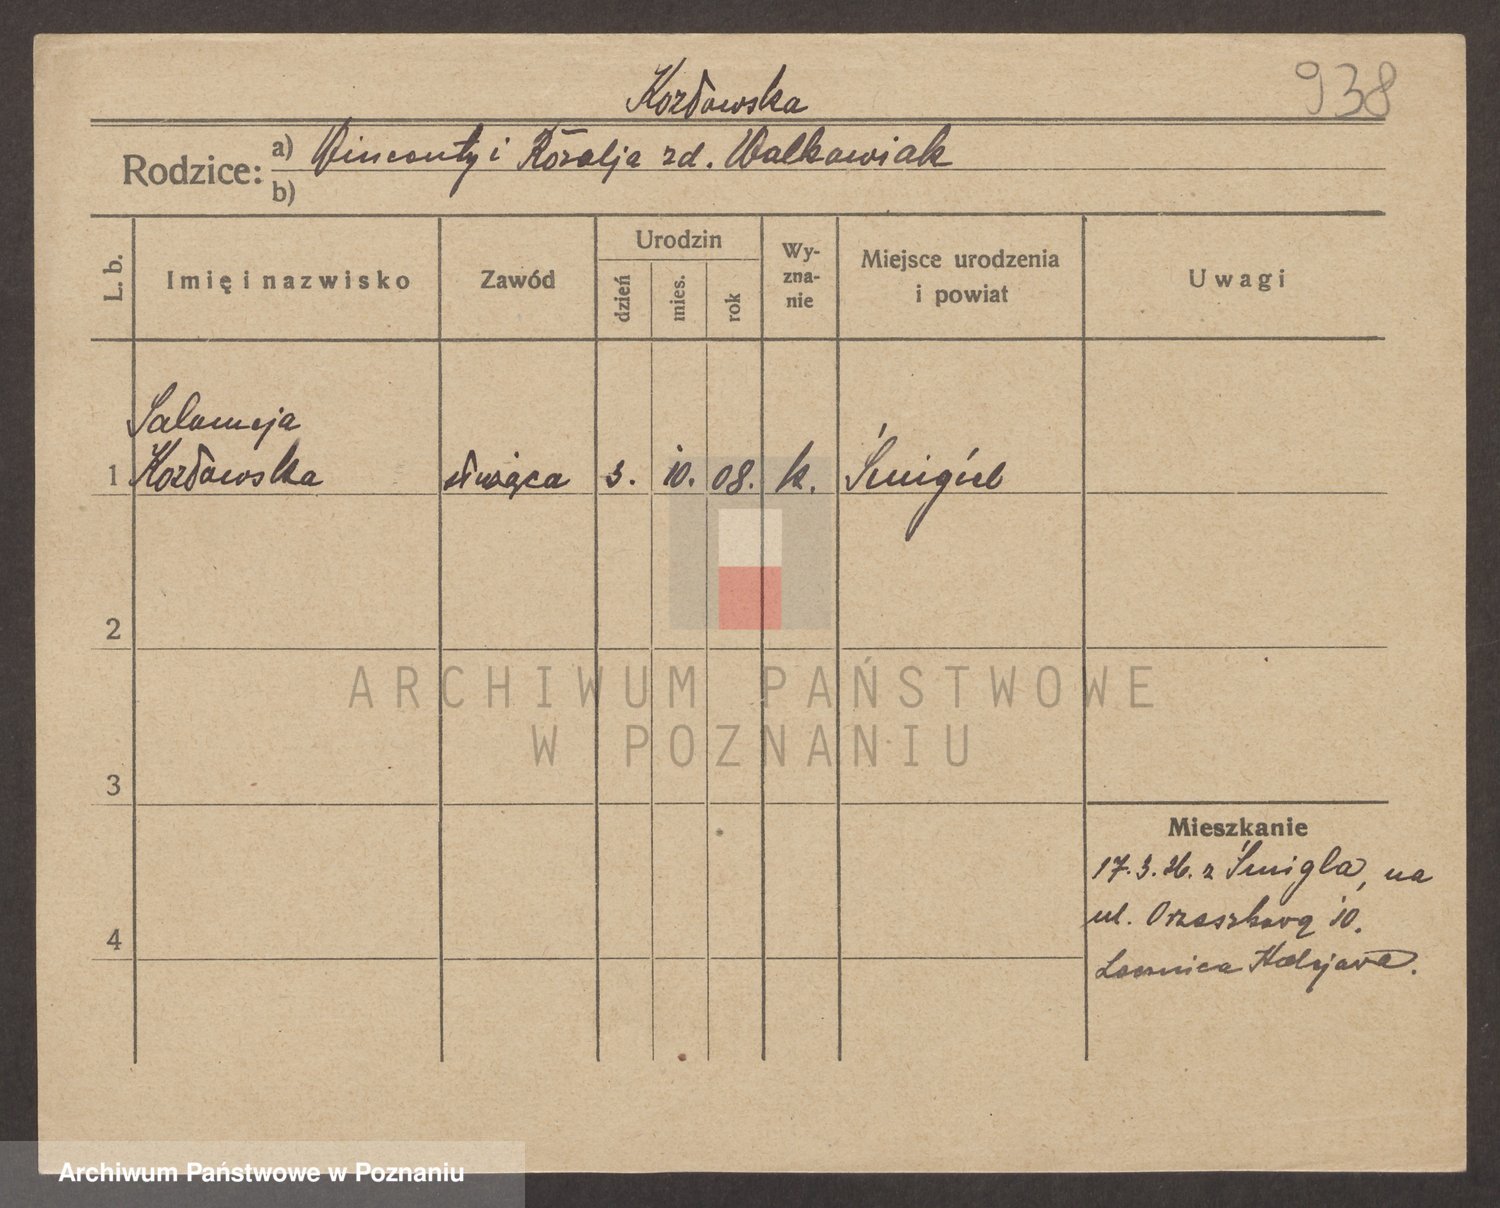 938
Kozłowska
Rodzice: a) Wincenty i Rozalja zd. Walkowiak
b)
L. b.
Imię i nazwisko
Zawód
Urodzin
dzień
mies.
rok
Wy-
zna-
nie
Miejsce urodzenia
i powiat
Uwagi
Salomeja
1 Kozłowska służąca 3. 10. 08. k. Śmigiel
2
3
4
Mieszkanie
17.3.26. z Śmigla, na
ul. Orzeszkową 10.
ARCHIWUM PAŃSTWOWE
W POZNANIU
Archiwum Państwowe w Poznaniu